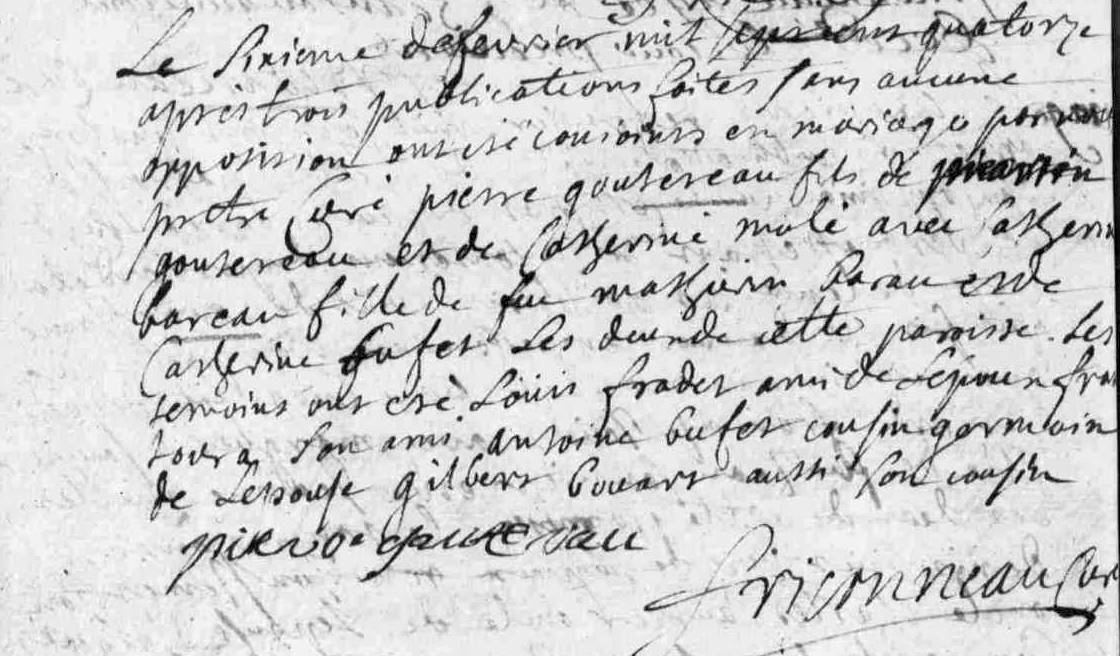 Le sixieme de fevrier mil sept cent quatorze
apres trois publications faites sans aucune
opposition ont été conioints en mariage par
prêtre Curé pierre goutereau fils de
goutereau et de Catherine molé avec Catherin
bareau fille de feu mathurin barau et de
Catherine bufet Les deux de cette paroisse. Les
temoins ont été Louis frader ami de Lepoux
son ami antoine bufet cousin germain
de Lepouse gilbert bouart aussi son cousin
pierre